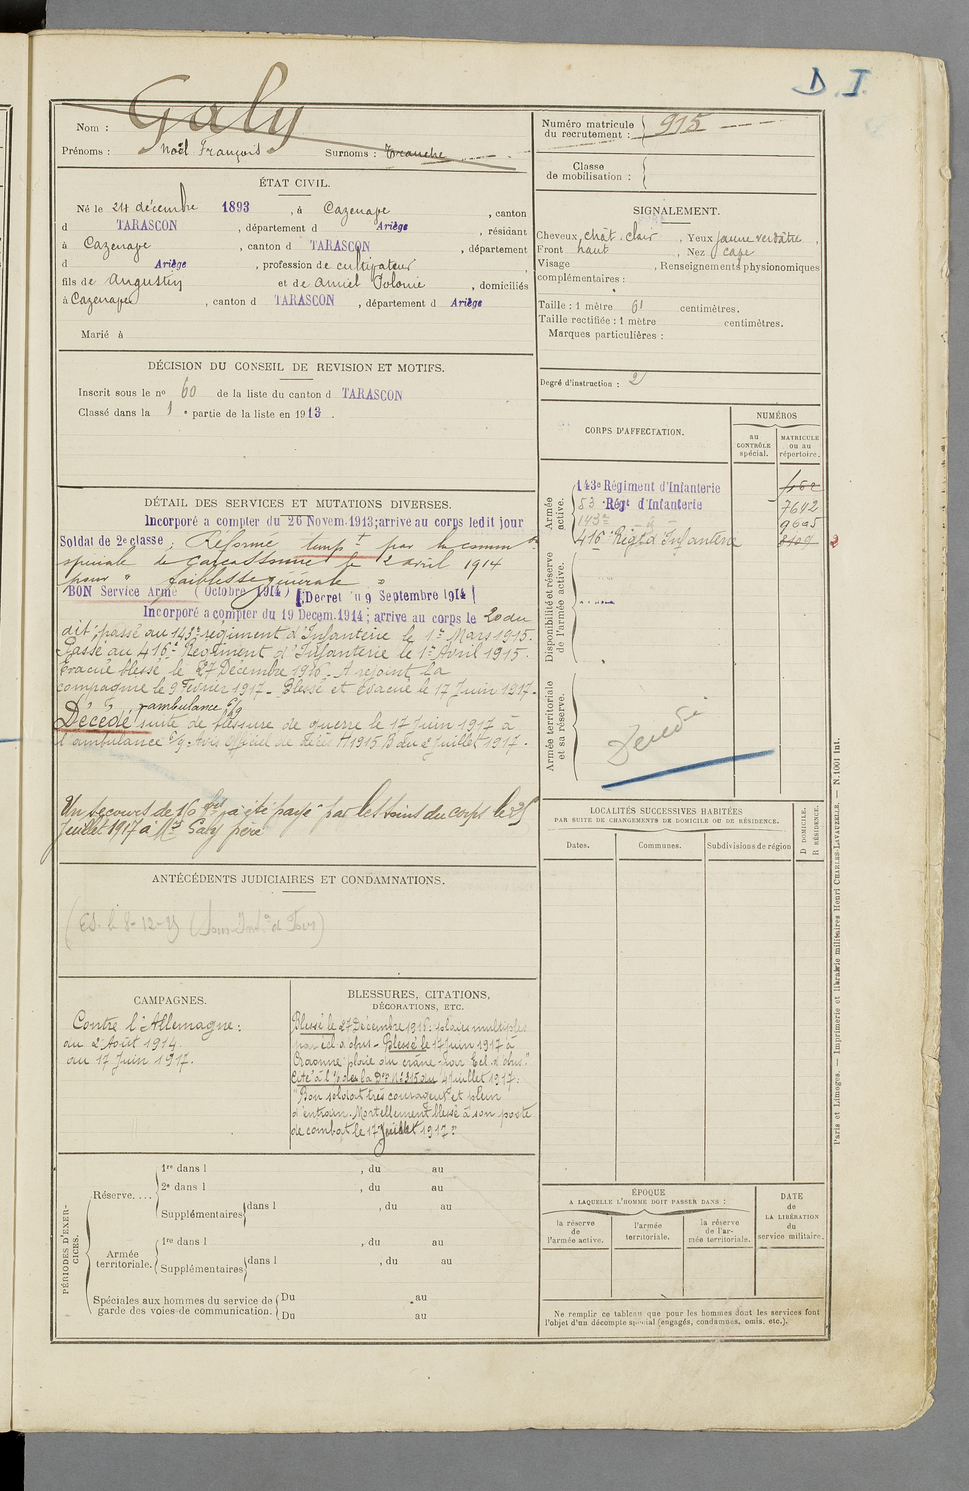 D. I.
Nom : Galy
Prénoms : Noël François Surnoms : Tranche
Numéro matricule du recrutement : 915
Classe de mobilisation :
ÉTAT CIVIL.
Né le 24 décembre 1893, à Cazenave, canton
d TARASCON, département d Ariège, résidant
à Cazenave, canton d TARASCON, département
d Ariège, profession de cultivateur,
fils de Augustin et de Amiel Polonie, domiciliés
à Cazenave, canton d TARASCON, département d Ariège
Marié à
SIGNALEMENT.
Cheveux chât. clair. Yeux jaune verdâtre,
Front haut, Nez cave
Visage, Renseignements physionomiques
complémentaires :
Taille : 1 mètre 61 centimètres.
Taille rectifiée : 1 mètre centimètres.
Marques particulières :
Degré d'instruction : 2
DÉCISION DU CONSEIL DE REVISION ET MOTIFS.
Inscrit sous le nº 60 de la liste du canton d TARASCON
Classé dans la 1 e partie de la liste en 1913.
CORPS D'AFFECTATION.
NUMÉROS
au CONTRÔLE spécial.
MATRICULE ou au répertoire.
Armée active.
143e Régiment d'Infanterie
53 Régt d'Infanterie 7642
143e _ d _ 9605
416 e Régt d'Infanterie
Disponibilité et réserve de l'armée active.
Armée territoriale et sa réserve.
Décédé
DÉTAIL DES SERVICES ET MUTATIONS DIVERSES.
Incorporé a compter du 26 Novem. 1913; arrive au corps ledit jour
Soldat de 2e classe; Réformé tempt par la common
spéciale de Carcassonne le 2 avril 1914
pour " faiblesse générale "
BON Service Armé (Octobre 1914) [Décret du 9 Septembre 1914]
Incorporé a compter du 19 Decem. 1914; arrive au corps le 20 du
dit; passé au 143e régiment d'Infanterie le 1er Mars 1915.
Passé au 416e Régiment d'Infanterie le 1er Avril 1915.
Evacué blessé le 27 Décembre 1916. A rejoint la
compagnie le 9 Février 1917. Blessé et évacué le 17 Juin 1917.
ambulance 5/9
Décédé suite de blessure de guerre le 17 Juin 1917 à
l'ambulance 5/9. Avis officiel de Décès H 1915 B du 2 Juillet 1917.
Un secours de 150 frs a été payé par les soins du corps le 25
Juillet 1917 à Mr Galy père
LOCALITÉS SUCCESSIVES HABITÉES
PAR SUITE DE CHANGEMENTS DE DOMICILE OU DE RÉSIDENCE.
Dates.
Communes.
Subdivisions de région
D DOMICILE.
R RÉSIDENCE.
ANTÉCÉDENTS JUDICIAIRES ET CONDAMNATIONS.
CAMPAGNES.
Contre l'Allemagne :
du 2 Août 1914
au 17 Juin 1917.
BLESSURES, CITATIONS,
DÉCORATIONS, ETC.
Blessé le 27 Décembre 1916 : plaies multiples
par ecl. d'obus - Blessé le 17 Juin 1917 à
Craonne "plaie du crâne par Ecl. d'obus."
Cité à l'o/ de la D.I. Nº 315 du 4 Juillet 1917 :
"Bon soldat très courageux et plein
d'entrain. Mortellement blessé à son poste
de combat le 17 Juillet 1917."
PÉRIODES D'EXERCICES.
Réserve....
1re dans l, du au
2e dans l, du au
Supplémentaires dans l, du au
Armée territoriale.
1re dans l, du au
Supplémentaires dans l, du au
Spéciales aux hommes du service de garde des voies de communication.
Du au
Du au
ÉPOQUE
A LAQUELLE L'HOMME DOIT PASSER DANS :
la réserve de l'armée active.
l'armée territoriale.
la réserve de l'armée territoriale.
DATE de LA LIBÉRATION du service militaire.
Ne remplir ce tableau que pour les hommes dont les services font
l'objet d'un décompte spécial (engagés, condamnés, omis, etc.).
Paris et Limoges. — Imprimerie et librairie militaires Henri CHARLES-LAVAUZELLE. — N. 1001 Int.